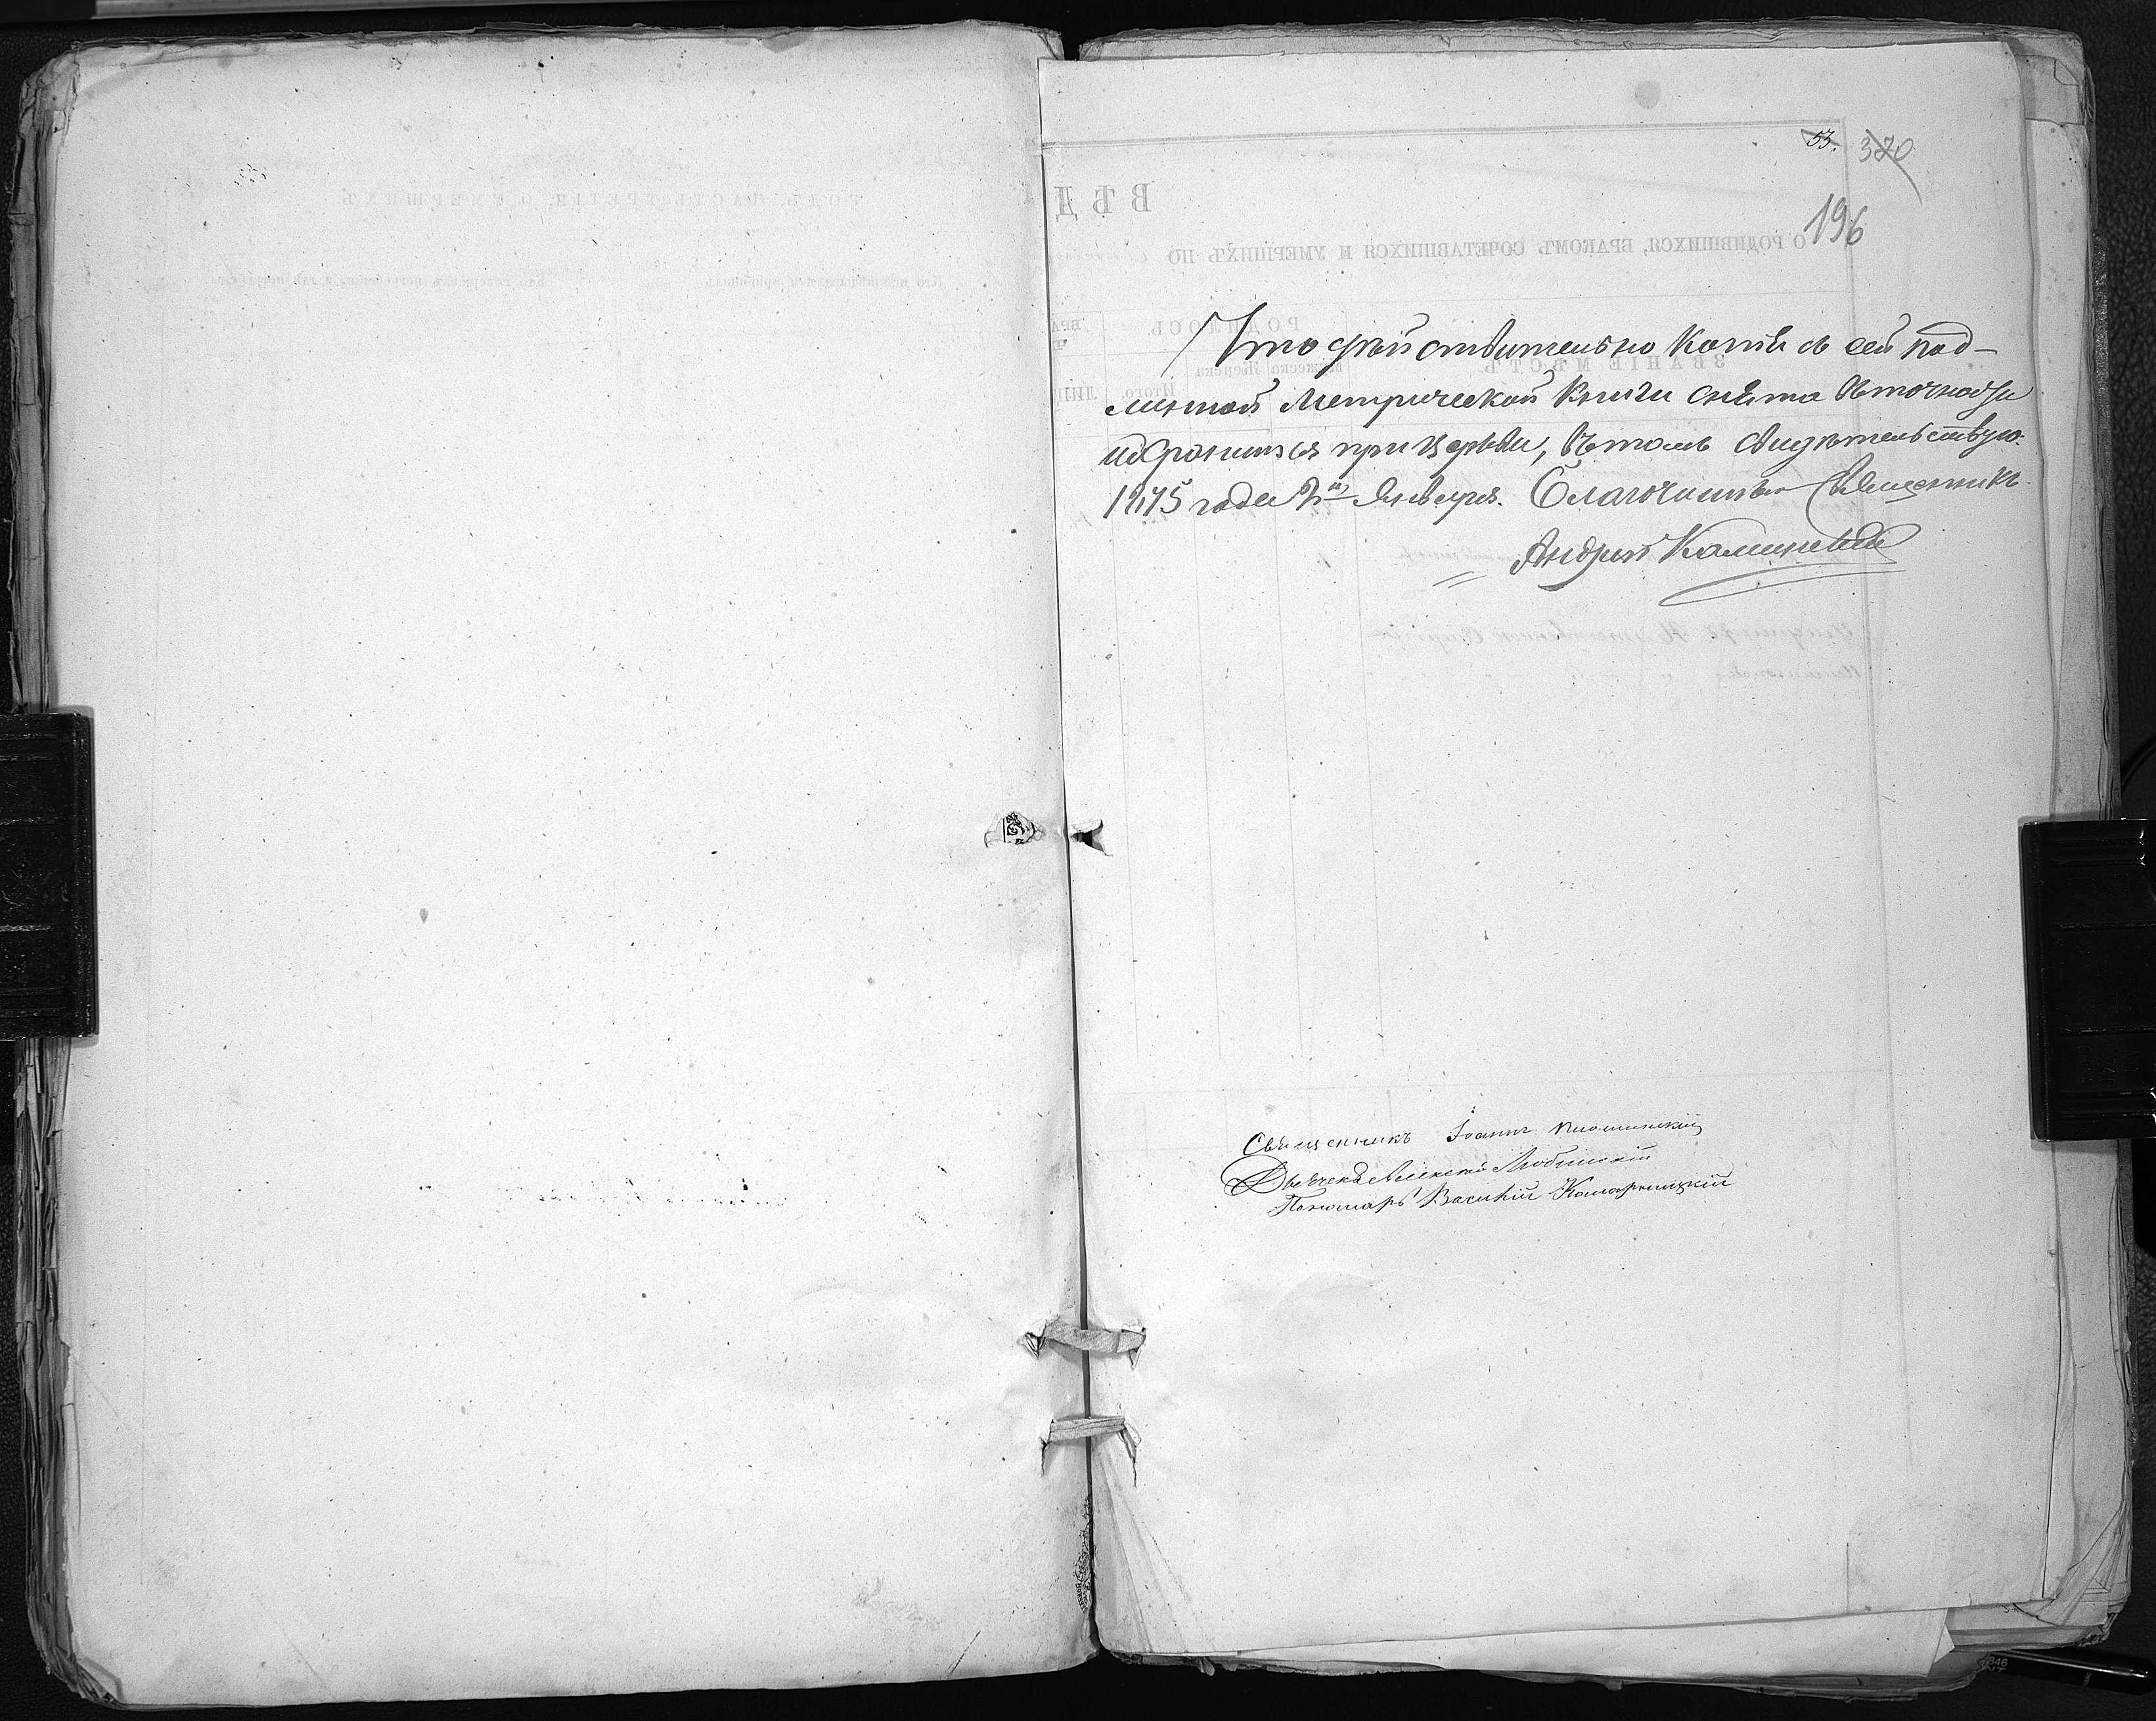 53.
320
196
Что действительно копія съ сей под-
линной Метрической Книги снята въ точности
и хранится при церкви, въ томъ свидѣтельствую:
1875 года Января. Благочинный Священникъ
Андрей
Священникъ Іоаннъ
Дьячекъ Алексѣй Любинскій
Пономарь Василій Комарницкій